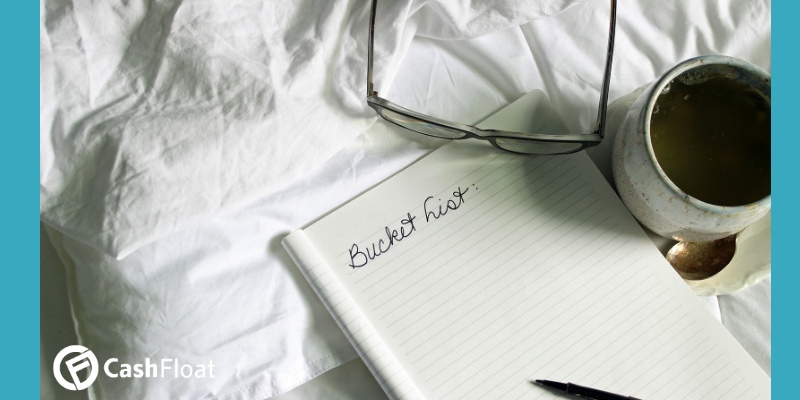 Bucket List:
CashFloat